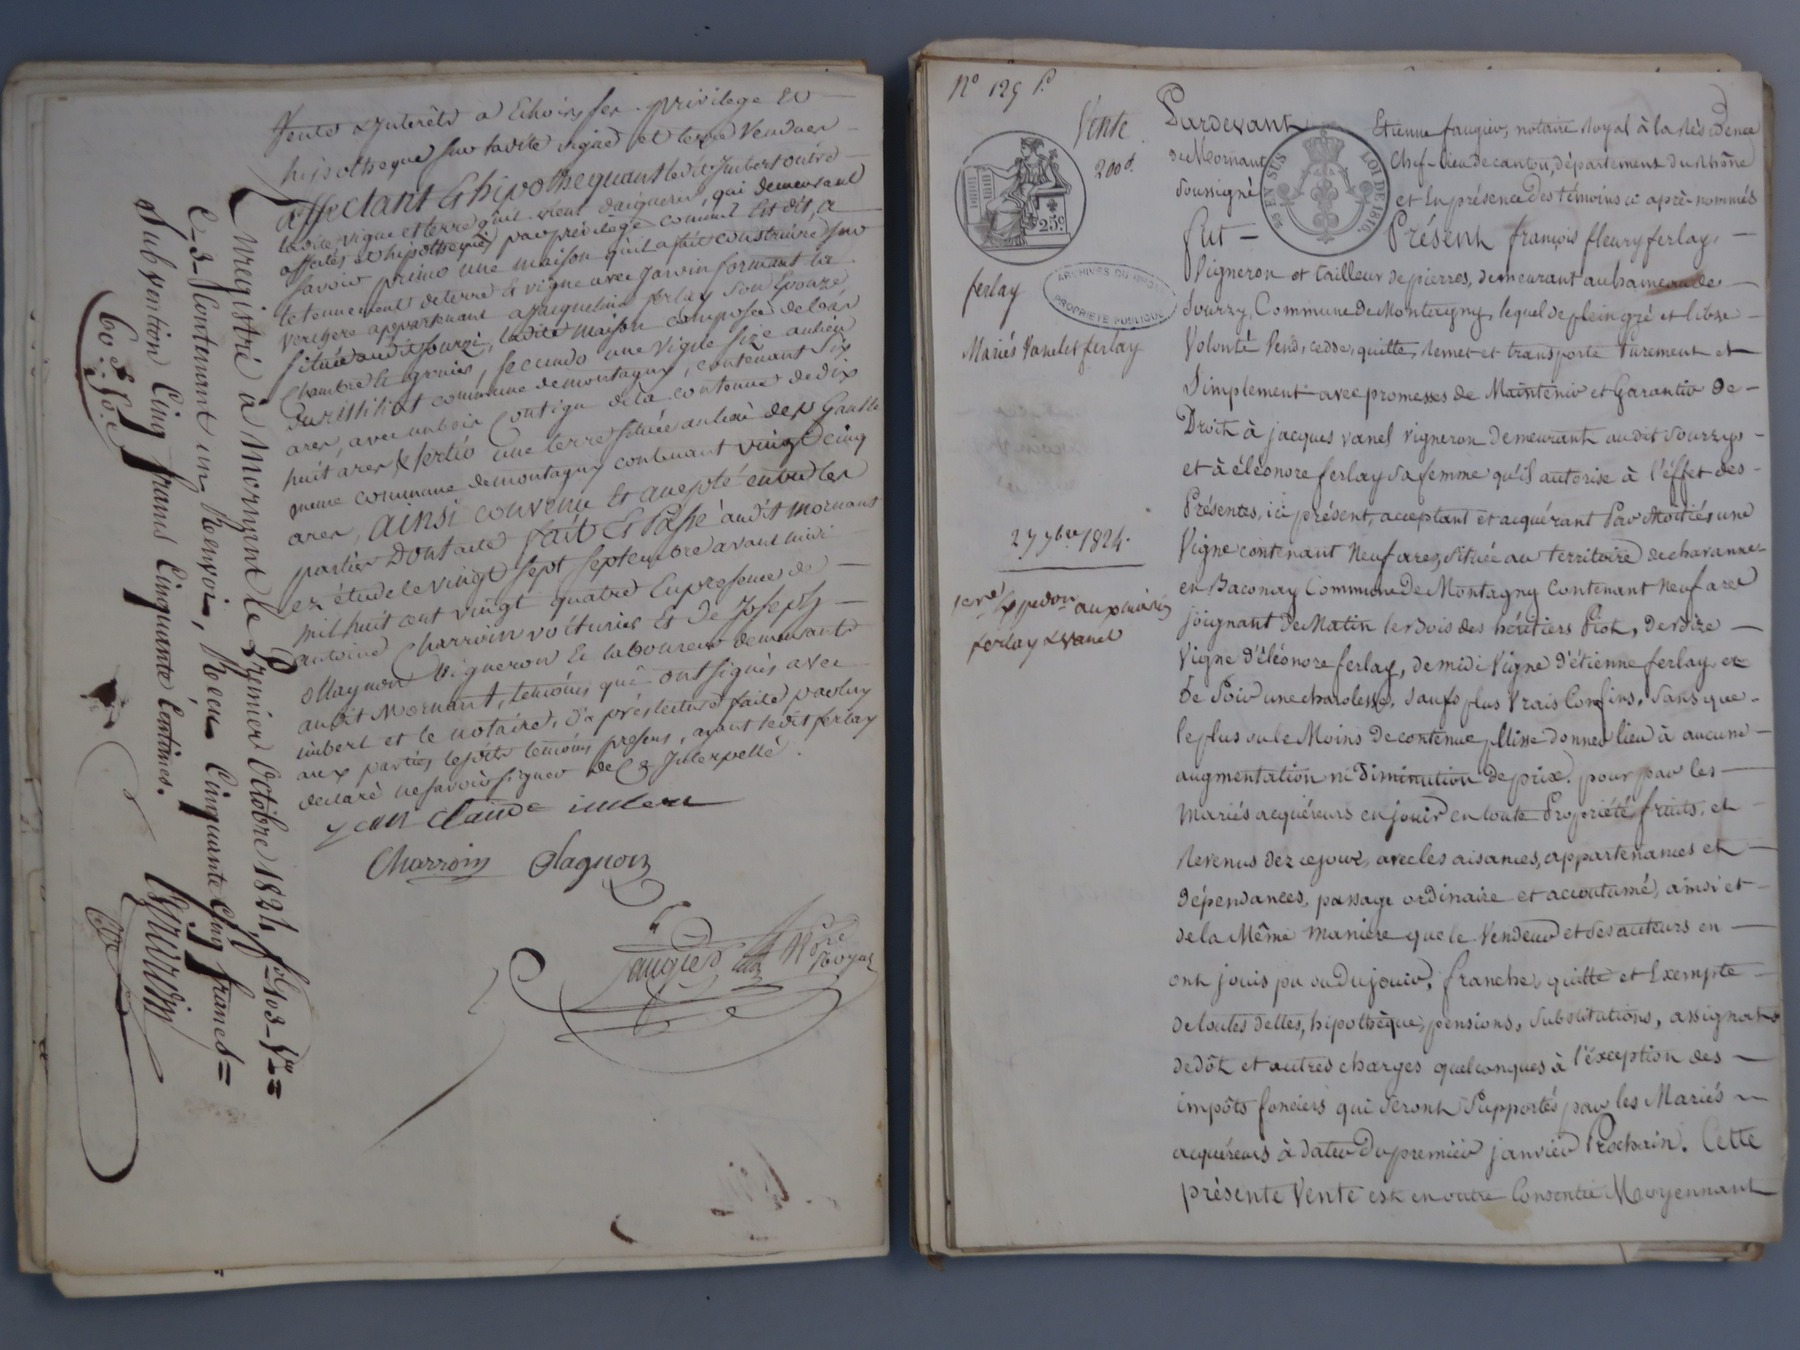 vente & Interêts a Echoir, fer privilege Et
hipotheque sur ladite vigne et terre Venduer
affectant & hipothequant ledit Imbert outre
ladite vigne et terre qu'il vient d'acquerir, qui demeurent
affectés et hipothequés par privilege comme Est dit, a
savoir primo une maison qu'il a fait construire sur
le tennement de terre & vigne avec jardin formant la
verchere appartenant a jacqueline ferlay son Epouze
située audit sourzi, ladite maison composée de bas
chambre & grenier, secundo une vigne size au lieu
commune de montagny, contenant six
ares, avec un bois contigu de la contenue de dix
huit ares & tertio une terre située au lieu des
meme commune de montagny contenant vingt cinq
ares, ainsi convenu Et accepté entre les
parties Dont acte fait Et Passé audit Mornant
en étude le vingt sept septembre avant midi
mil huit cent vingt quatre En presence de
antoine Charroin voiturier Et de Joseph
Vigneron & laboureur demeurants
audit Mornant, temoins qui ont signés avec
imbert et le notaire, d'après lecture faite par luy
aux parties lesdits temoins presens, ayant ledit ferlay
declaré ne savoir signer de ce Interpellé.
jean Claude imbert
Charroin
faugier
Nre Royal
Enregistré à Mornant le Premier Octobre 1824, f° 103 Vo
C. 3 Contenant un Renvoi, Reçu Cinquante Cinq francs =
Subvention Cinq francs Cinquante Centimes.
60 f 50 c
N° 129
Vente
200 d.
25c.
25 EN SUS
LOI DE 1816
ARCHIVES DU RHÔNE
PROPRIÉTÉ PUBLIQUE
ferlay
Mariés Vanel ferlay
27 7bre 1824.
1ere Expedon aux mariés
ferlay & Vanel
Pardevant Etienne faugier, notaire Royal à la Résidence
de Mornant Chef-lieu de canton, département du Rhône
soussigné et En présence des témoins ci après nommés
fut Présent françois fleury ferlay,
Vigneron et tailleur de pierres, demeurant au hameau de
Sourzy, Commune de Montagny, lequel de plein gré et libre
Volonté Vend, cedde, quitte, remet et transporte Purement et
Simplement avec promesses de Maintenir et Garantir De
Droit à jacques vanel vigneron demeurant audit Sourzy
et à éléonore ferlay sa femme qu'il autorise à l'effet des
Présentes, ici présent, acceptant et acquérant Par Moitiés une
Vigne contenant Neuf ares, située au territoire de chavanne
en Baconay Commune De Montagny Contenant Neuf ares
joignant De Matin les Bois des héritiers Piot, De Bize
Vigne d'éléonore ferlay, de midi Vigne d'étienne ferlay et
De Soir une charolesse, sauf plus Vrais Confins, Sans que
le plus ou le Moins de contenue puisse donner lieu à aucune
augmentation ni Diminution de prix. pour par les
Mariés acquéreurs en jouir en toute Propriété, fruits, et
Revenus dez ce jour, avec les aisances, appartenances et
Dépendances, passage ordinaire et accoutumé, ainsi et
de la Même Maniere que le Vendeur et ses auteurs en
ont jouis pu ou Du jouir, franche, quitte et Exempte
De toutes dettes, hipothèque, pensions, Substitutions, assignats
de dôt et autres charges quelconques à l'éxception des
impôts fonciers qui seront Supportés par les Mariés
acquéreurs à dater Du premier janvier Prochain. Cette
présente Vente est en outre Consentie Moyennant